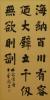 海納百川有容
迺大壁立千仞
無欲則剛